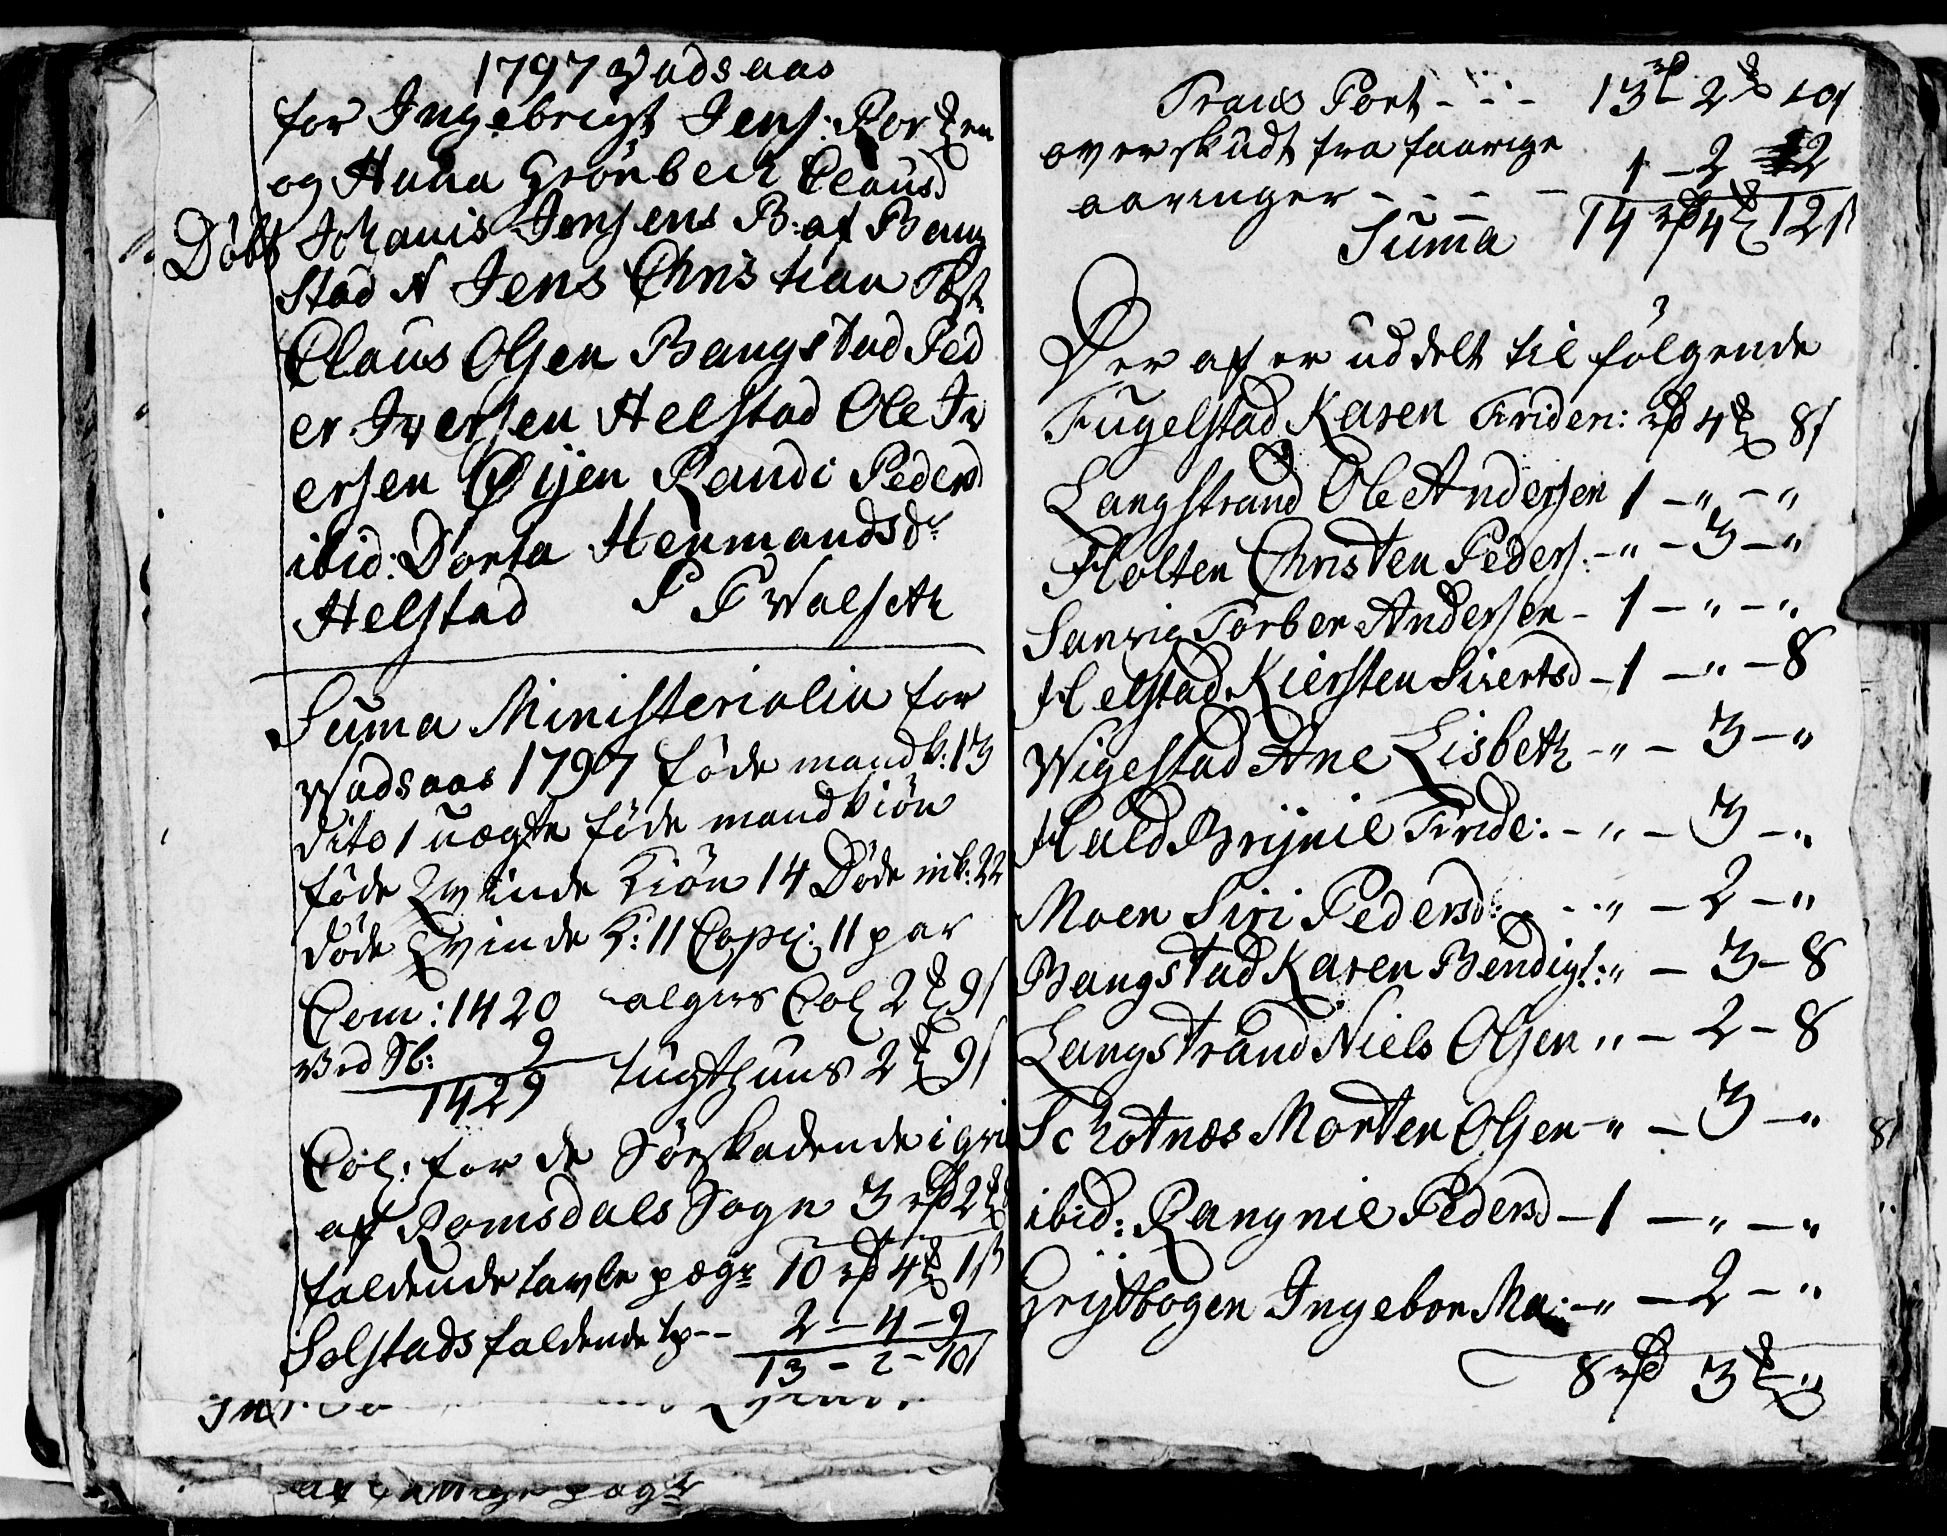 1797 Vadsaas
for Ingebrigt Jens: Kor
og Hana Grönbech Claus:d
Döbt Johanis Jensens B: af Bang
stad N Jens Christian Test:
Claus Olsen Bangstad Ped
er Iversen Helstad Ole Iv
ersen Öijen Randi Pedersd
ibid: Dorta Hermandsdr
Helstad P F Walseth
Suma Ministerialia for
Wadsaas 1797 föde mandk: 13
dito 1 uægte föde mandkiön
föde Qvinde Kiön 14 Döde mk: 22
döde Qvinde K: 11 Copu: 11 par
Com: 1420 Col 2 9s
ved Sb: 9 tugthuus 2 9s
1429
Col: for de Söeskadende i
af Romsdals Sogn 3 rd 2
faldende tavle pæge 10 rd 4 1s
Solstads faldende tp-- 2 - 4 - 9
13 - 2 - 10s
Trans Port - - - 13 rd 2 10s
overskudt fra faarige
aaringer - - - - 1 - 2 2
Suma 14 rd 4 12s
Der af er uddelt til fölgende
Fugelstad Karen Frider: rd 4 8s
Langstrand Ole Andersen 1 - „ - „
Holten Christen Peders: - „ - 3 - „
Sanvig Torber Andersen - 1 - „ - „
Helstad Kiersten Sivertsd - 1 - „ - 8
Wigestad Ane Lisbeth - „ - 3 - „
Hald Brynil Fride: - „ - 3 - „
Moen Siri Pedersd: - „ - 2 - „
Bangstad Karen Bendigt: „ - 3 - 8
Langstrand Niels Olsen „ - 2 - 8
Schotnæs Morten Olsen - „ - 3 - „
ibid: Rangnil Pedersd - 1 - „ - „
Grijtbogen Ingebor Ma: - „ - 2 - „
8 rd 3 „
8s